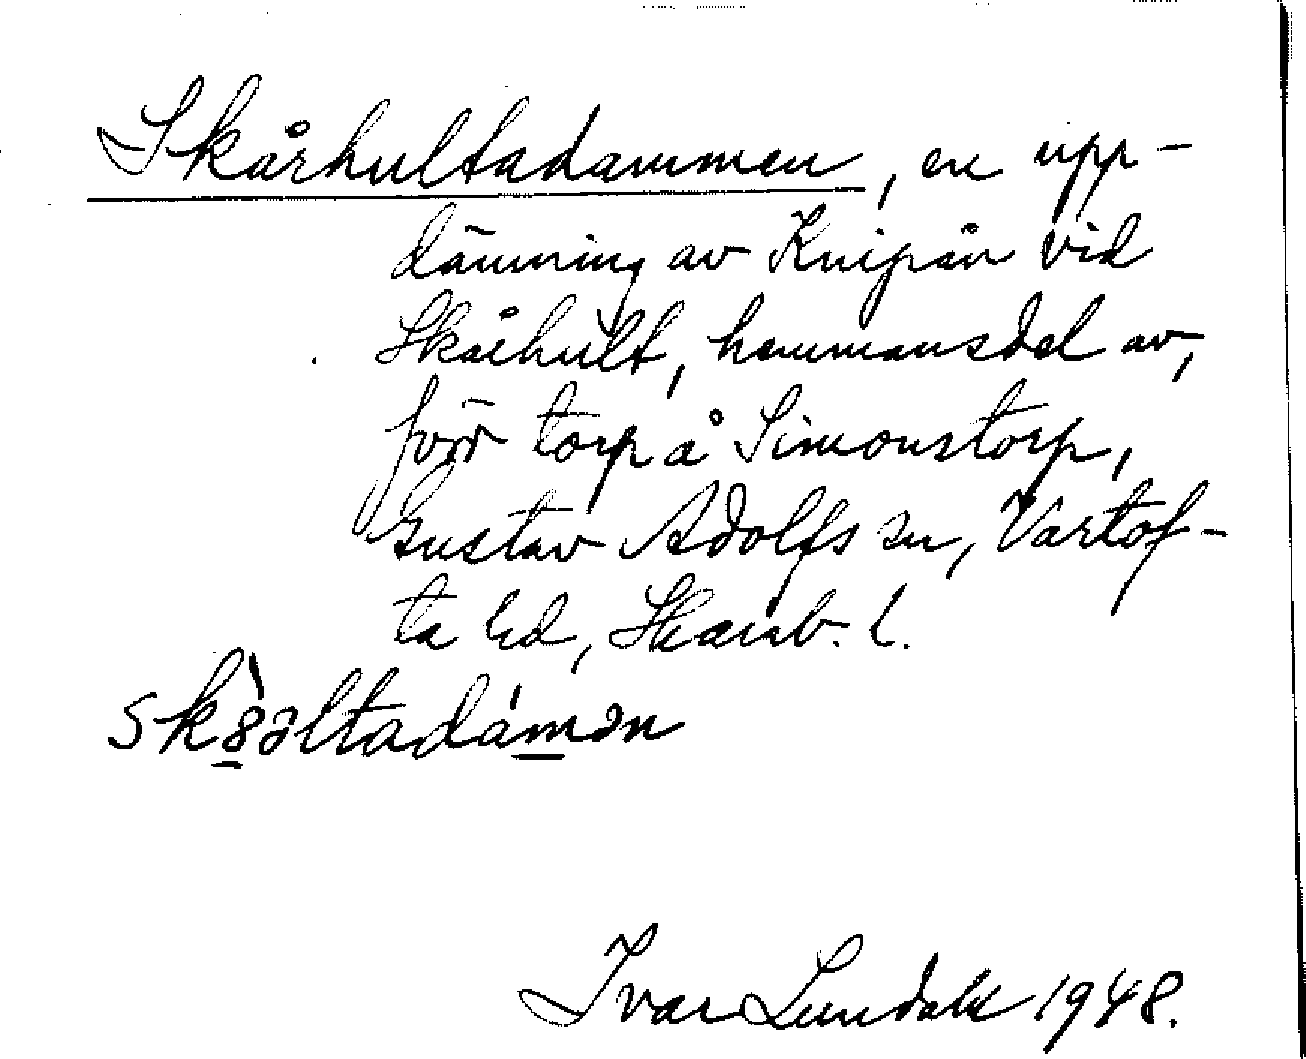 Skårhultadammen, en upp-
dämning av Knipån vid
Skårhult, hemmansdel av,
förr torp å Simonstorp,
Gustav Adolfs sn, Vartof-
ta hd, Skarab. l.
Ivar Lundahl 1948.